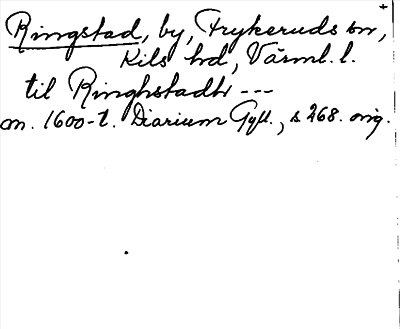 Ringstad, by, Frykeruds sn,
Kils hd, Värml. l.
til Ringhstadh ---
om. 1600-t. Diarium Gyll., s 268. orig.